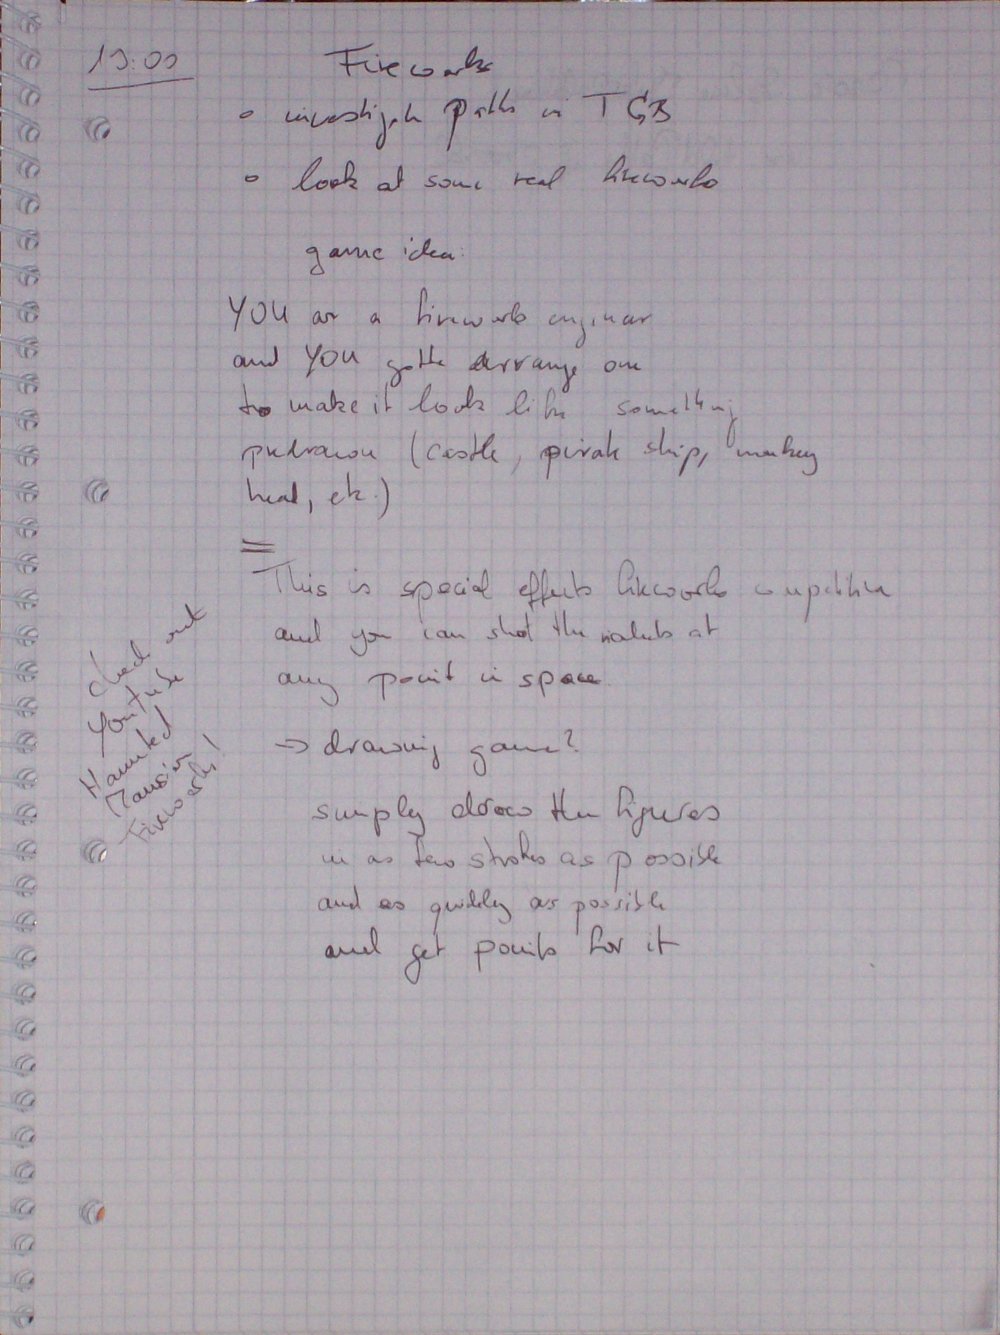 13:00
Fireworks
o investigate paths in TGB
o look at some real fireworks
game idea:
YOU are a fireworks engineer
and YOU gotta arrange one
to make it look like something
(castle, pirate ship, monkey
head, etc.)
This is special effects fireworks competition
and you can shoot the at
any point in space.
→ drawing game?
simply draw the figures
in as few strokes as possible
and as quickly as possible
and get points for it
check out
YouTube
Haunted
Mansion
Fireworks!